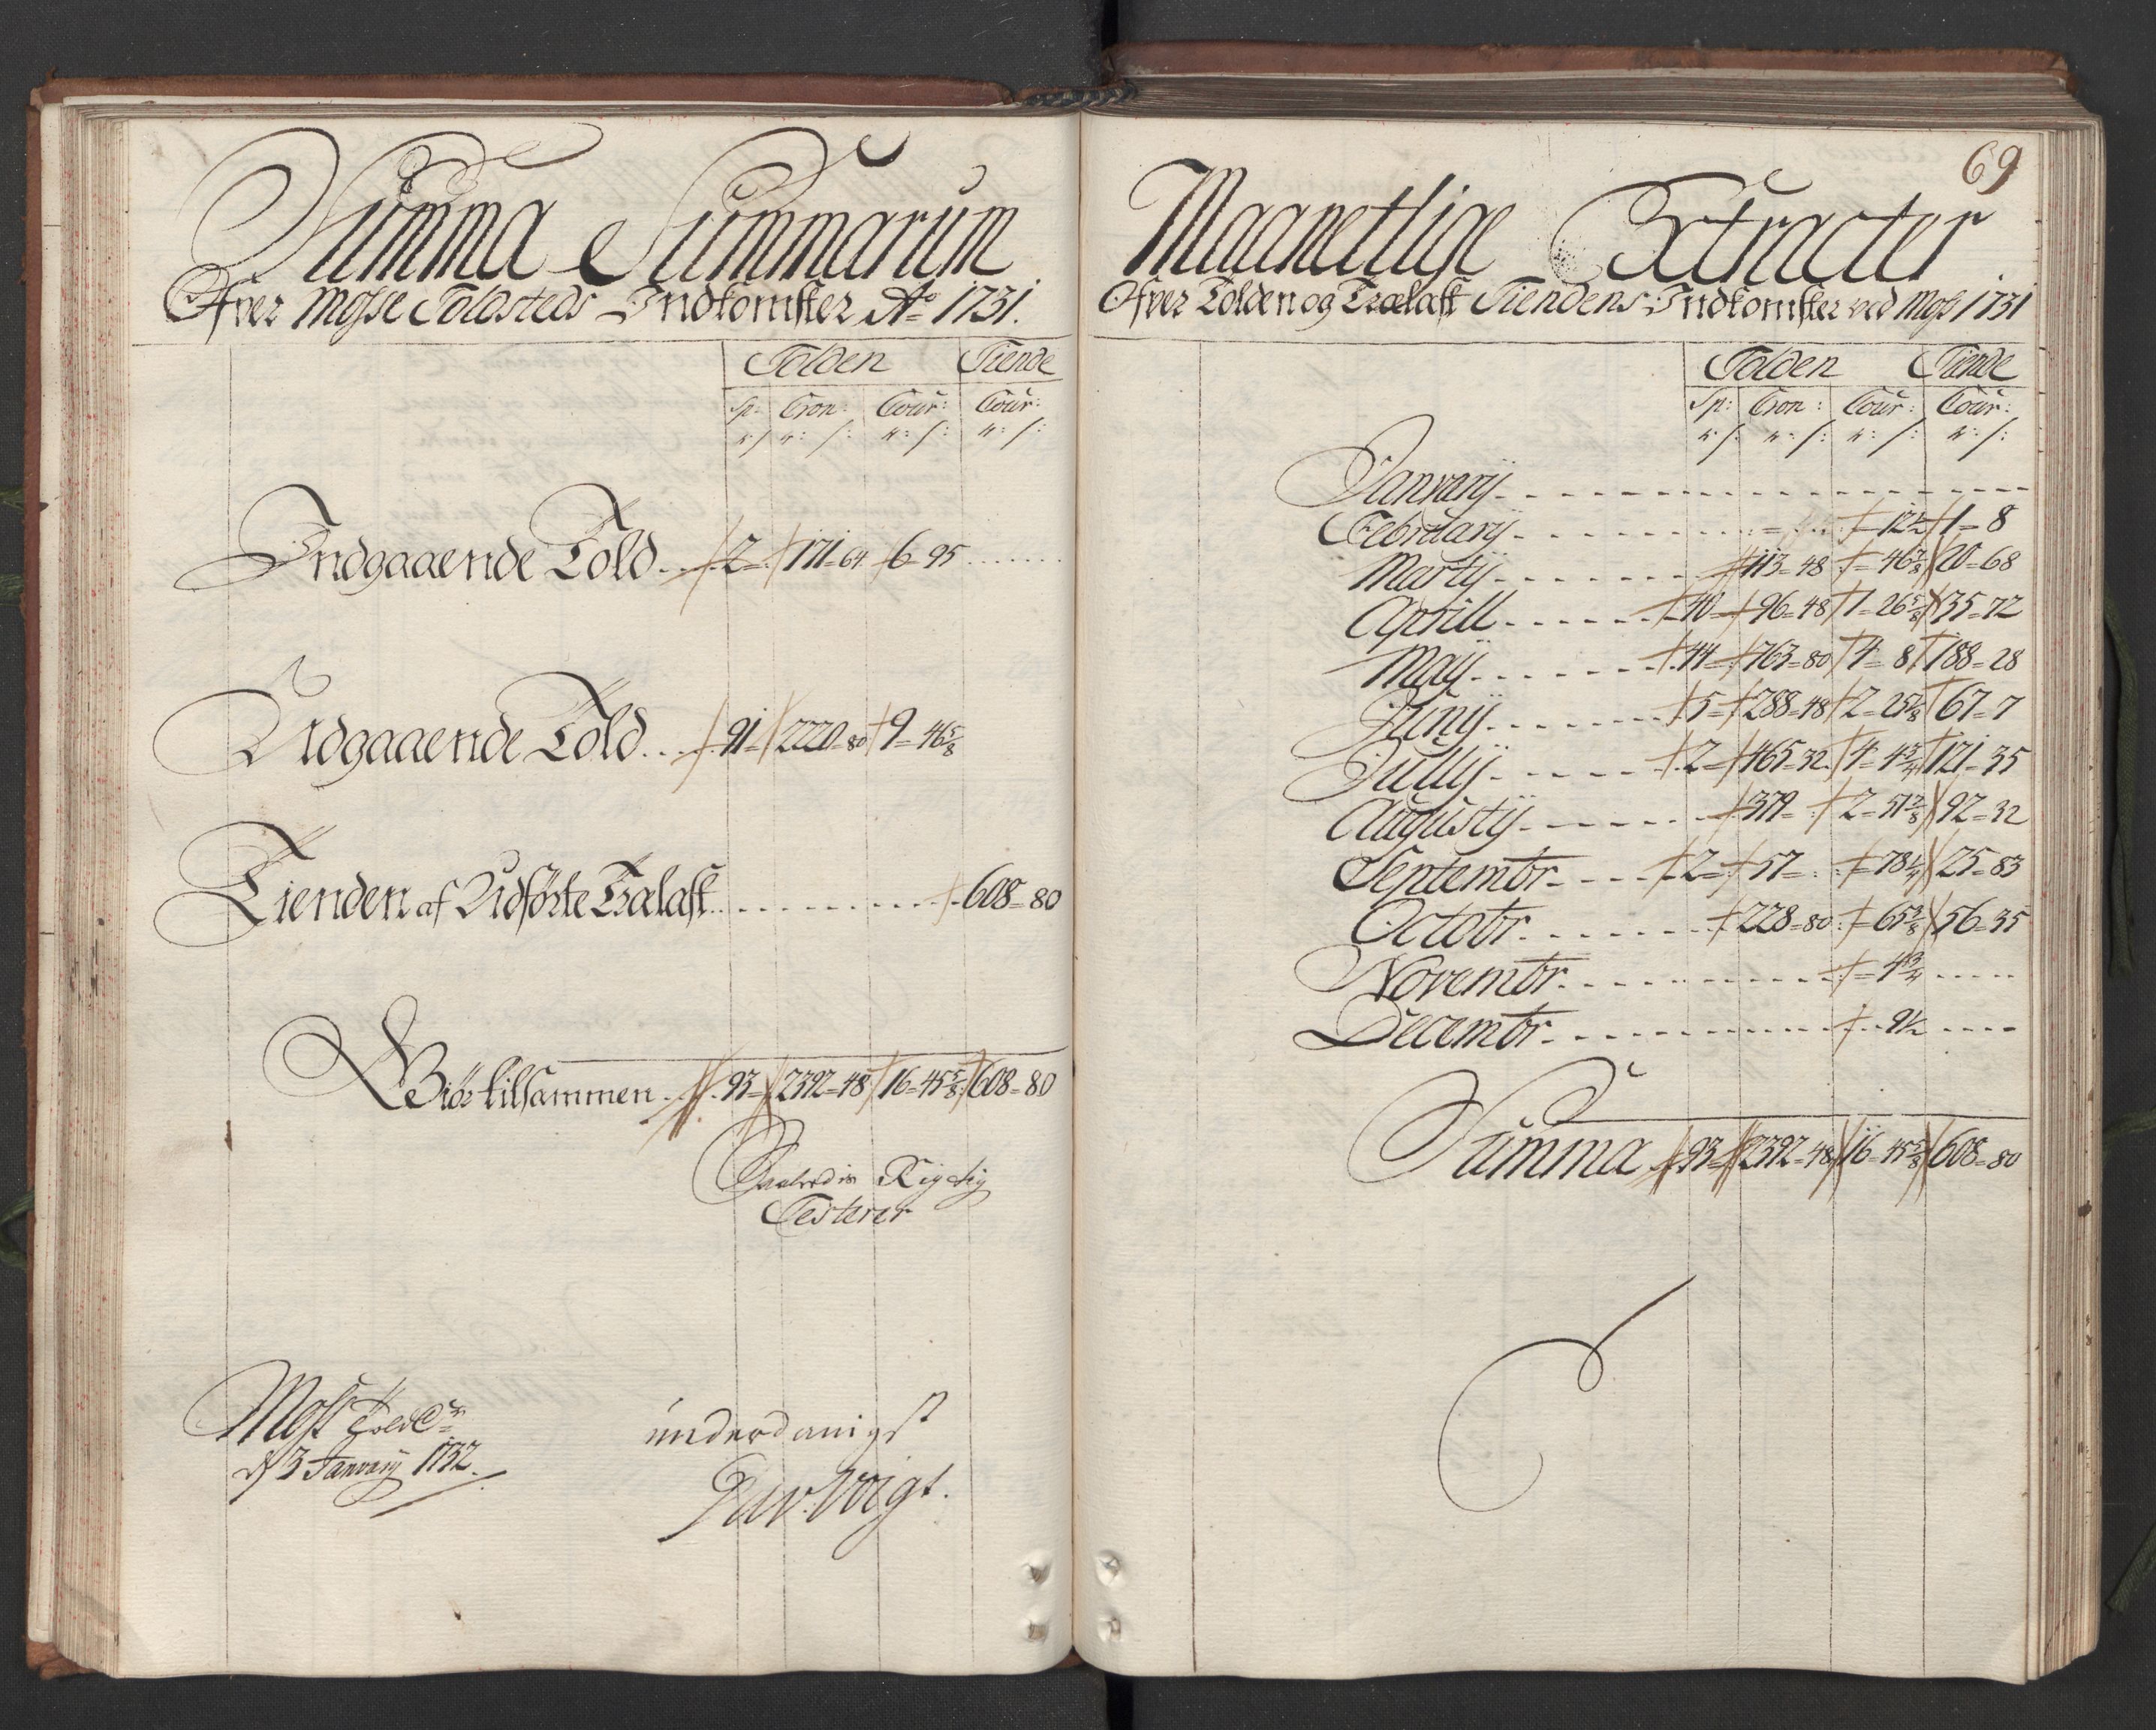 Summa Summarum
Ofver Mosse Toldsteds Indkomster Ao 1731.
Tolden Tiende
Sp: Cron: Cour: Cour:
r: s r: s: r: s: r: s:
Indgaaende Told 2= 171=64 6=95
Udgaaende Told 91= 2220=80 9=46 5/8
Tienden af Udførte Trælast 608=80
Giør tilsammen 93= 2392=48 16=45 5/8 608=80
Rigtig
Testerer
Moss Told
d 3 January 1732.
underdanigst
Voigt.
69
Maanetlige Extracter
Ofver Tolden og Trælast Tiendens Indkomster ved Moss 1731
Tolden Tiende
Sp: Cron: Cour: Cour:
r: s: r: s: r: s: r: s:
Januarij
Februarij = 12 1/2 1=8
Martij 113=48 =46 7/8 20=68
Aprill 40= 96=48 1=26 5/8 35=72
Maij 44= 763=80 4=8 188=28
Junij 5= 288=48 2=25 7/8 67=7
Jullij 2= 465=32 4=4 3/4 121=35
Augustij 379= 2=51 7/8 92=32
Septembr 2= 57= =78 1/4 25=83
Octobr 228=80 =65 3/8 56=35
Novembr =4 3/4
Decembr 9 1/2
Summa 93= 2392=48 16=45 5/8 608=80